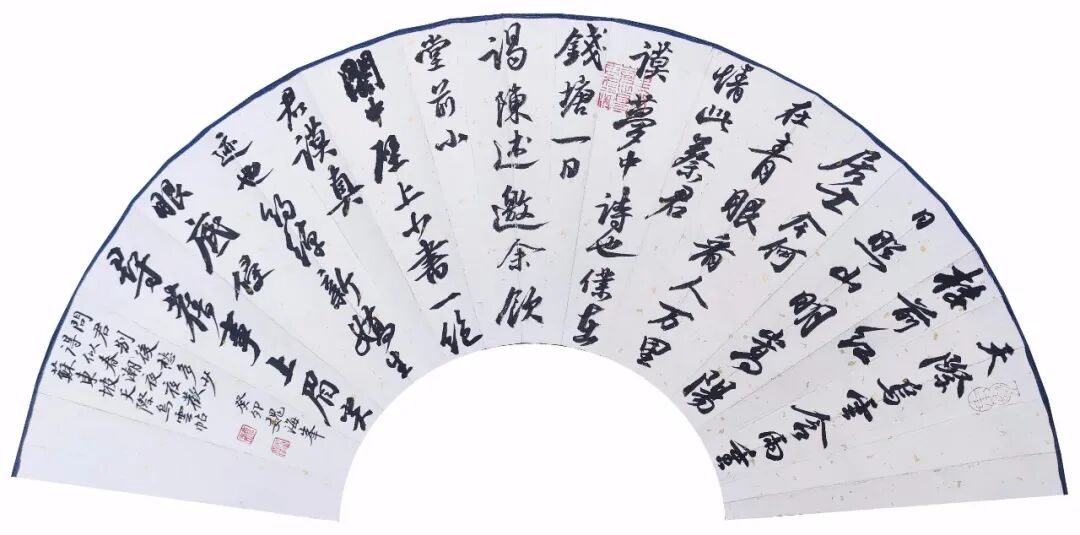 天際烏雲含雨重
樓前紅
日照山明嵩陽
居士今何
在青眼看人萬里
情此蔡君
謨夢中詩也僕在
錢塘一日
謁陳述邀余飲
堂前小
閤中壁上小書一絕
君謨真
迹也約綽新嬌生
眼底侵
尋舊事上眉尖
問君別後愁多少
得似春潮夜夜
蘇東坡天際烏雲帖
癸卯魏海峯